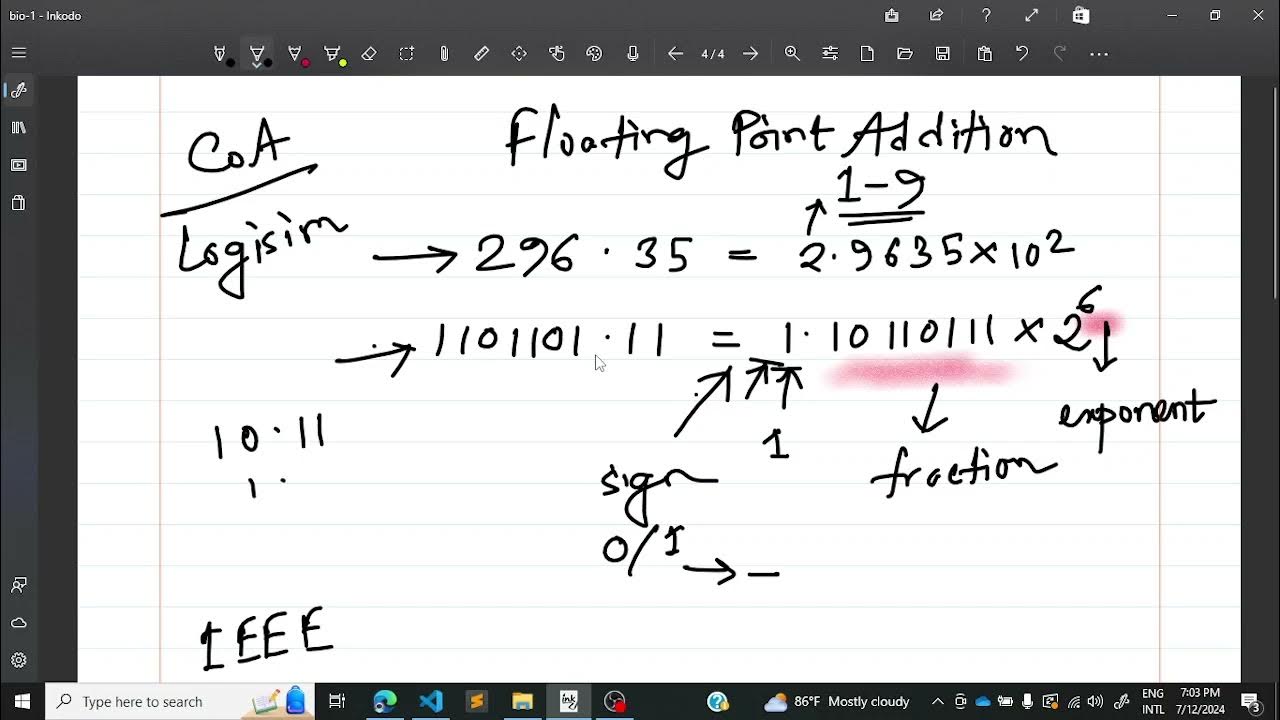 bio-1 - Inkodo
4/4
CoA
Floating Point Addition
1-9
Logisim
296.35 = 2.9635×10²
1101101.11 = 1.10110111 × 2⁶
exponent
1
fraction
10.11
1.
sign
0/1 → −
IEEE
Type here to search
86°F Mostly cloudy
ENG
INTL
7:03 PM
7/12/2024